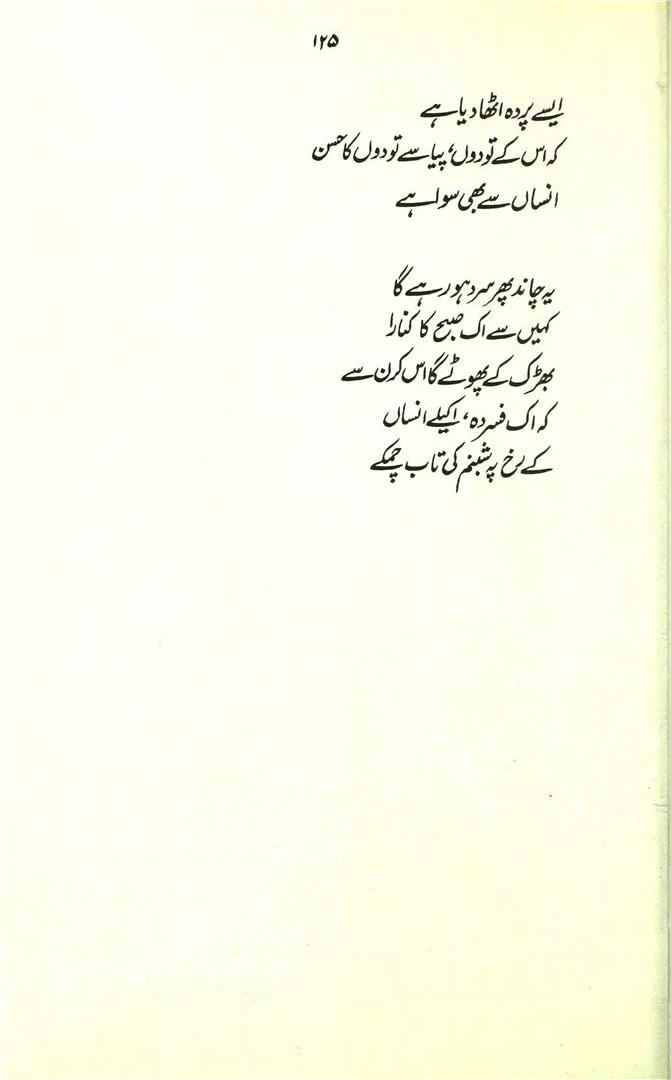 ۱۲۵
ایسے پردہ اٹھا دیا ہے
کہ اس کے تودوں، پیاسے تودوں کا حسن
انساں سے بھی سوا ہے
یہ چاند پھر سرد ہو رہے گا
کہیں سے اک صبح کا کنارا
بھڑک کے پھوٹے گا اس کرن سے
کہ اک فسردہ، اکیلے انساں
کے رخ پہ شبنم کی تاب چمکے